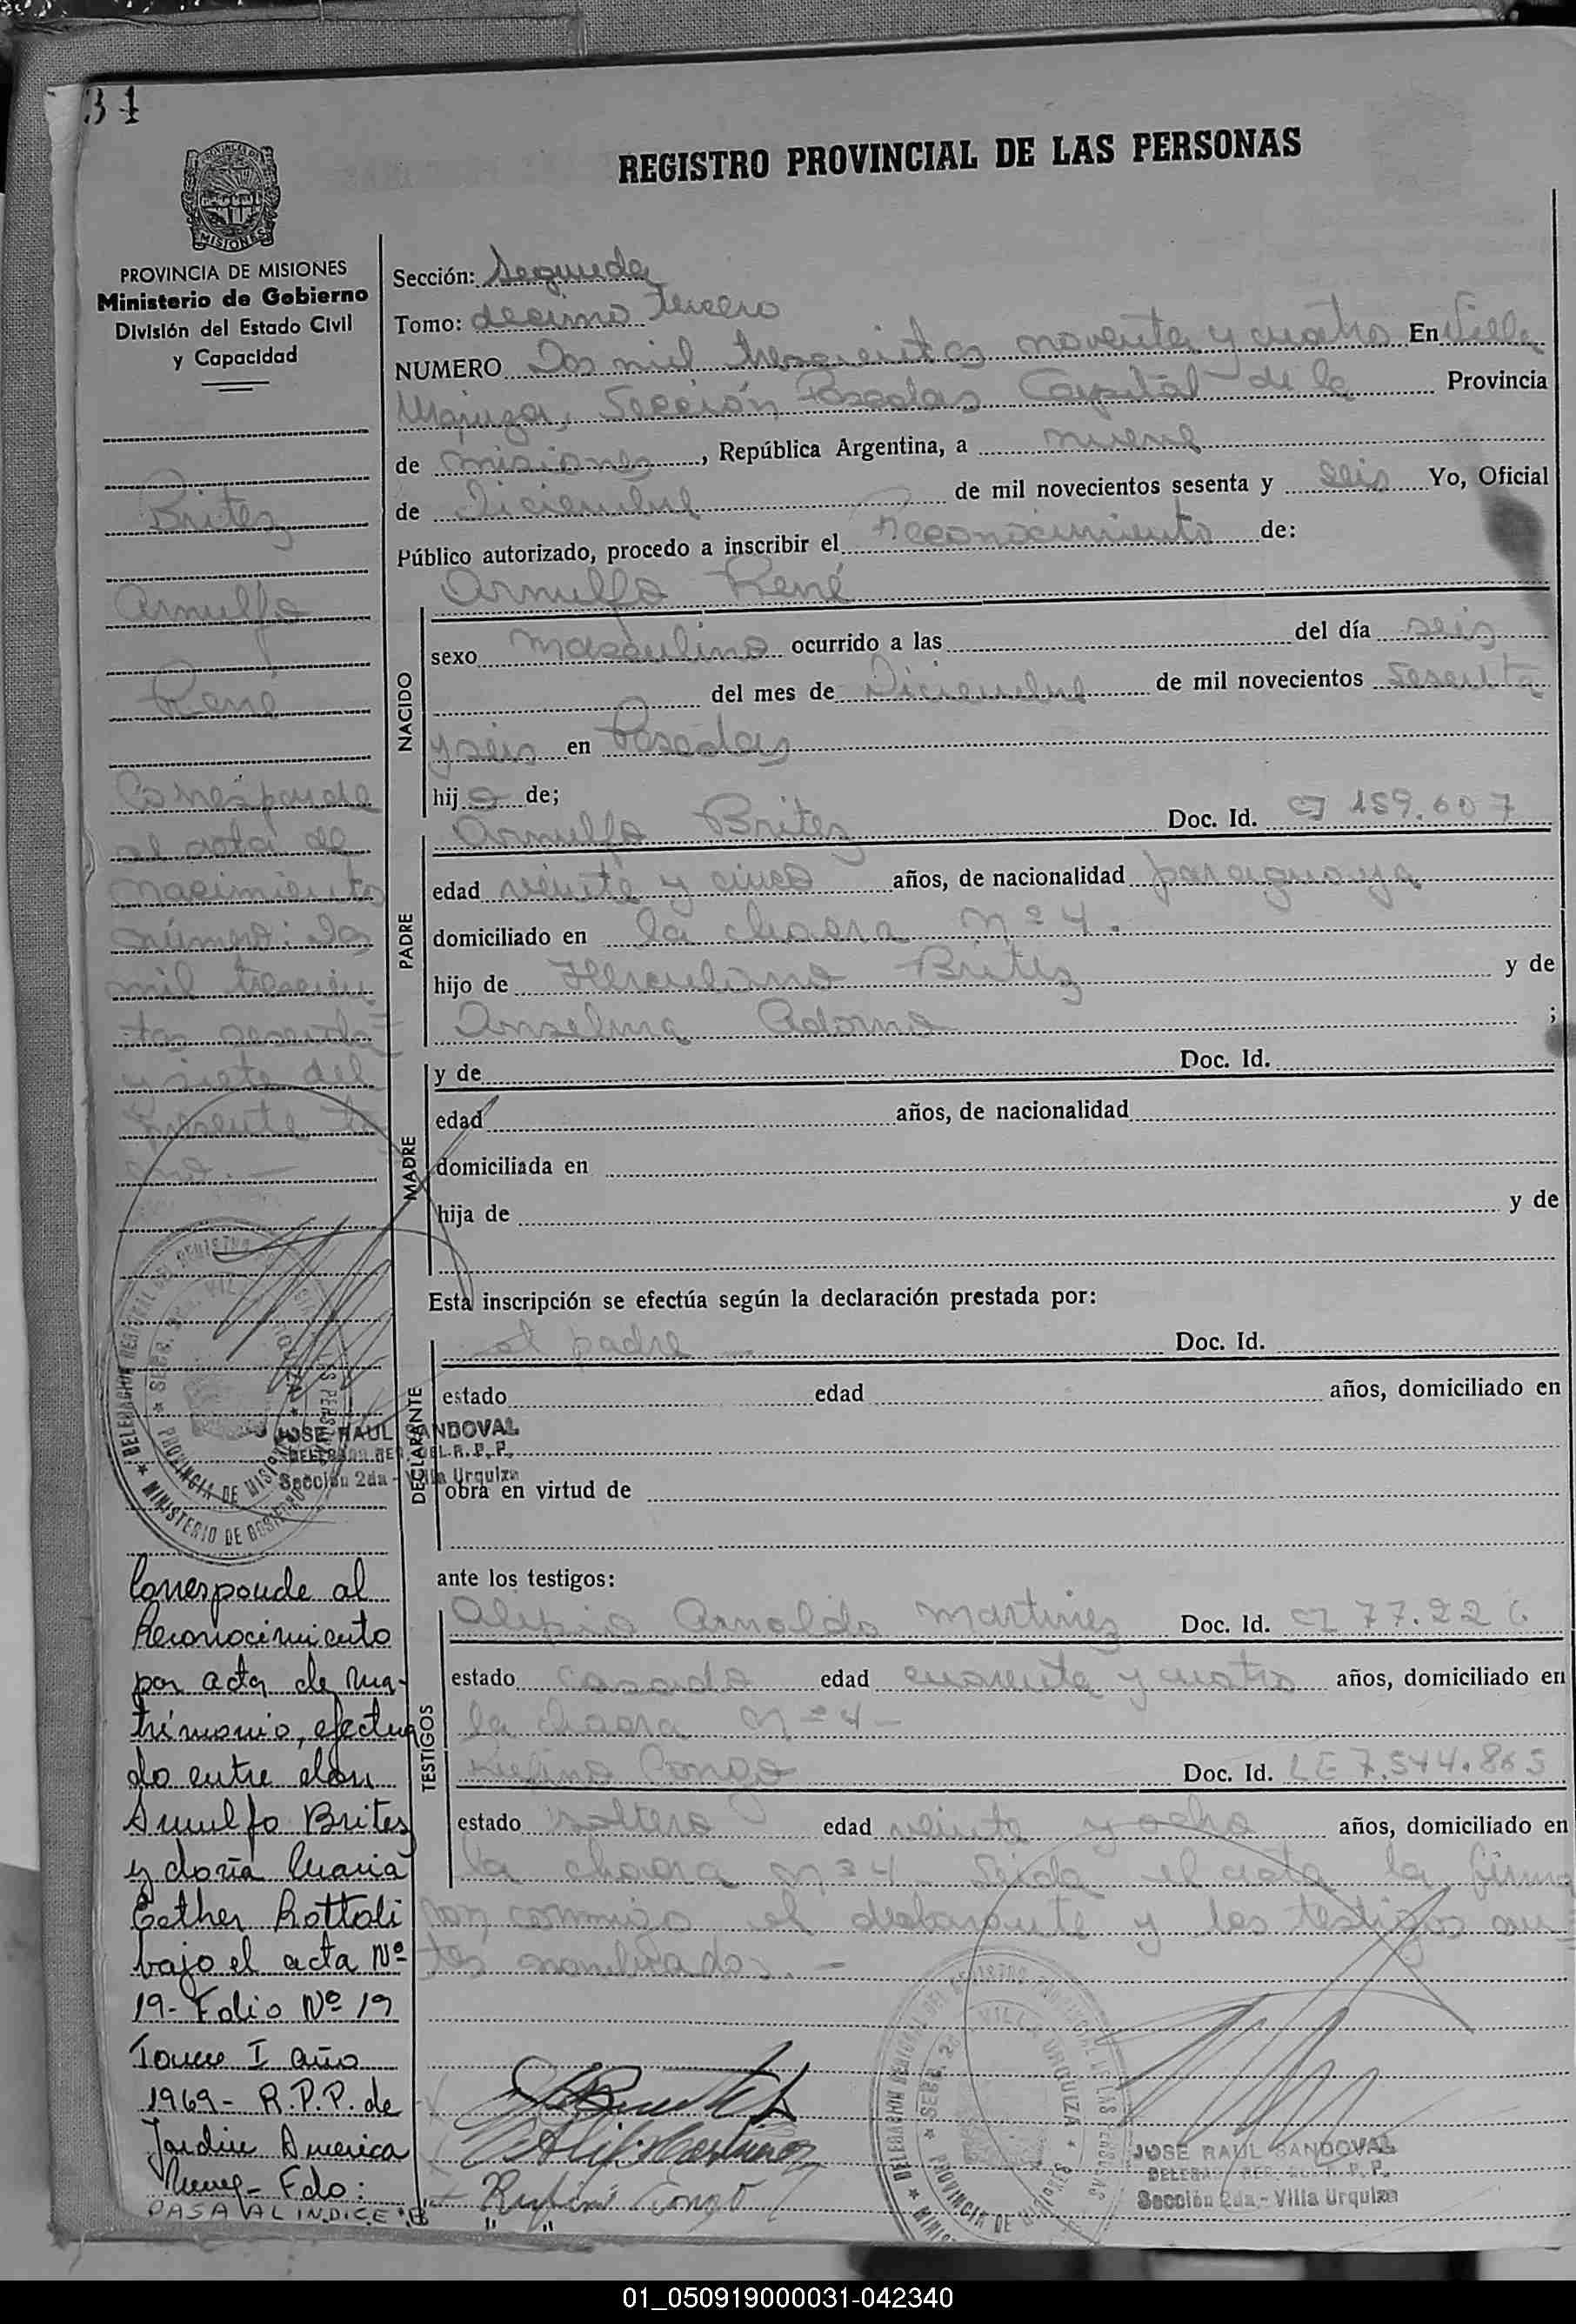 34
REGISTRO PROVINCIAL DE LAS PERSONAS
MISIONES
PROVINCIA DE MISIONES
Ministerio de Gobierno
División del Estado Civil
y Capacidad
Britez
Arnulfo
René
Corresponde
al acta de
nacimiento
número: dos
mil trescien
tos sesenta
y siete del
presente to
mo.-
JOSE RAUL SANDOVAL
DELEGADO REG. DEL R.P.P.
Sección 2da - Villa Urquiza
Corresponde al
Reconocimiento
por acta de ma-
trimonio, efectua
do entre don
Arnulfo Britez
y doña Maria
Esther Rottoli
bajo el acta Nº
19- Folio Nº 19
Tomo I año
1969- R.P.P. de
Jardin America
Fdo:
PASA AL INDICE "B"
Sección: Segunda
Tomo: decimo tercero
NUMERO Dos mil trescientos noventa y cuatro En Villa
Urquiza, Sección Posadas Capital de la Provincia
de Misiones, República Argentina, a nueve
de Diciembre de mil novecientos sesenta y seis Yo, Oficial
Público autorizado, procedo a inscribir el Reconocimiento de:
Arnulfo René
NACIDO
sexo masculino ocurrido a las del día seis
del mes de Diciembre de mil novecientos sesenta
y seis en Posadas
hij o de;
PADRE
Arnulfo Britez Doc. Id. CI 159.607
edad veinte y cinco años, de nacionalidad paraguaya
domiciliado en la chacra Nº 4.
hijo de Herculano Britez y de
Anselma Adorno ;
MADRE
y de Doc. Id.
edad años, de nacionalidad
domiciliada en
hija de y de
Esta inscripción se efectúa según la declaración prestada por:
DECLARANTE
el padre Doc. Id.
estado edad años, domiciliado en
obra en virtud de
ante los testigos:
TESTIGOS
Arnoldo Martinez Doc. Id. CI 77.226
estado casado edad cuarenta y cuatro años, domiciliado en
la chacra Nº 4 -
Rufino Doc. Id. LE 7.544.865
estado soltero edad veinte y ocho años, domiciliado en
la chacra Nº 4 Leida el acta la firma
ron conmigo el declarante y los testigos an
tes nombrados.-
JOSE RAUL SANDOVAL
DELEGADO REG. DEL R.P.P.
Sección 2da - Villa Urquiza
01_050919000031-042340